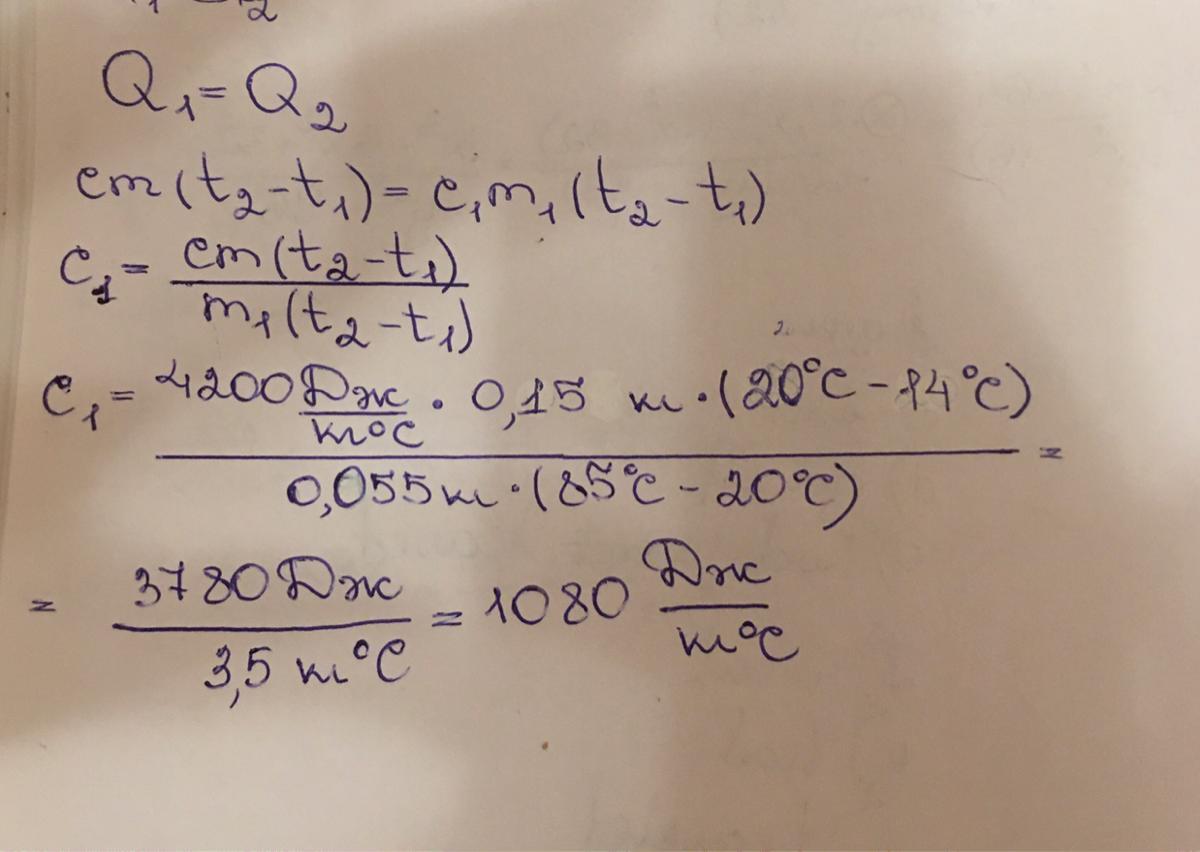 Q₁ = Q₂
cm(t₂-t₁) = c₁m₁(t₂-t₁)
c₁ = cm(t₂-t₁) / m₁(t₂-t₁)
c₁ = 4200 Дж/кг°C · 0,15 кг · (20°C - 14°C) / 0,055 кг · (85°C - 20°C) =
= 3780 Дж / 3,5 кг°C = 1080 Дж/кг°C